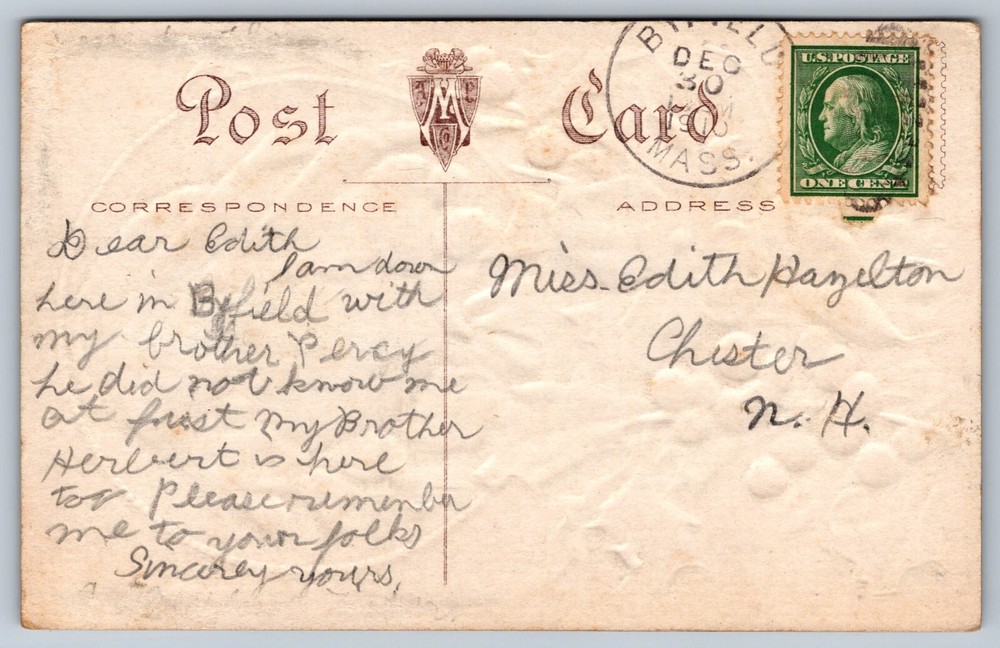 Post Card
BYFIELD
DEC
30
1910
MASS.
U.S. POSTAGE
ONE CENT
CORRESPONDENCE
ADDRESS
Dear Edith
I am down
here in Byfield with
my brother Percy
he did not know me
at frist My Brother
Herbert is here
too Please rumember
me to your folks
Sincarey yours,
Miss. Edith Hazelton
Chester
N. H.